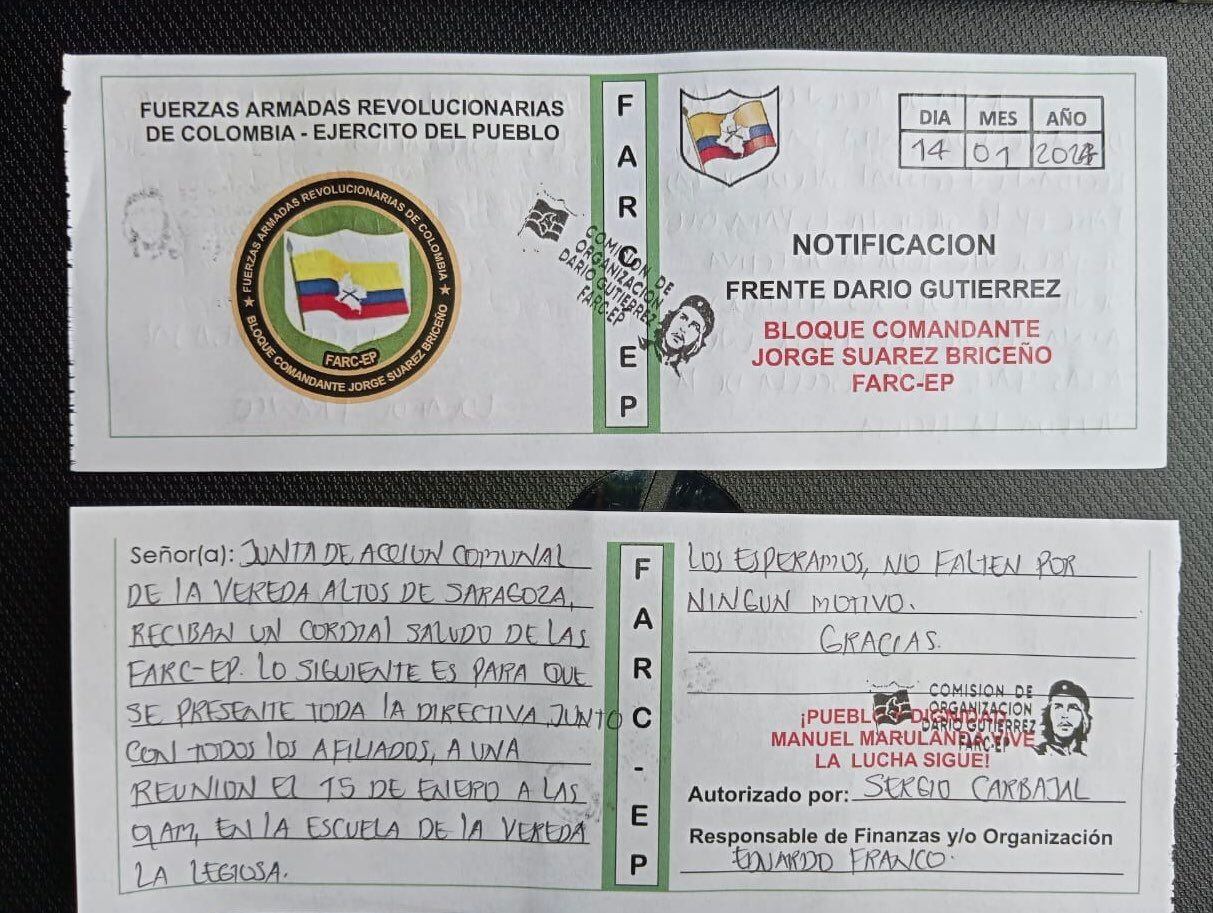 FUERZAS ARMADAS REVOLUCIONARIAS
DE COLOMBIA - EJERCITO DEL PUEBLO
★ FUERZAS ARMADAS REVOLUCIONARIAS DE COLOMBIA ★
FARC-EP
BLOQUE COMANDANTE JORGE SUAREZ BRICEÑO
COMISION DE
ORGANIZACION
DARIO GUTIERREZ
FARC-EP
F
A
R
C
E
P
DIA MES AÑO
14 01 2024
NOTIFICACION
FRENTE DARIO GUTIERREZ
BLOQUE COMANDANTE
JORGE SUAREZ BRICEÑO
FARC-EP
Señor(a): JUNTA DE ACCION COMUNAL
DE LA VEREDA ALTOS DE SARAGOZA,
RECIBAN UN CORDIAL SALUDO DE LAS
FARC-EP. LO SIGUIENTE ES PARA QUE
SE PRESENTE TODA LA DIRECTIVA, JUNTO
CON TODOS LOS AFILIADOS, A UNA
REUNION EL 15 DE ENERO A LAS
9AM, EN LA ESCUELA DE LA VEREDA
LA LEGIOSA.
F
A
R
C
-
E
P
LOS ESPERAMOS, NO FALTEN POR
NINGUN MOTIVO.
GRACIAS.
COMISION DE
ORGANIZACION
DARIO GUTIERREZ
FARC-EP
¡PUEBLO DIGNIDAD
MANUEL MARULANDA VIVE
LA LUCHA SIGUE!
Autorizado por: SERGIO CARBAJAL
Responsable de Finanzas y/o Organización
EDUARDO FRANCO.